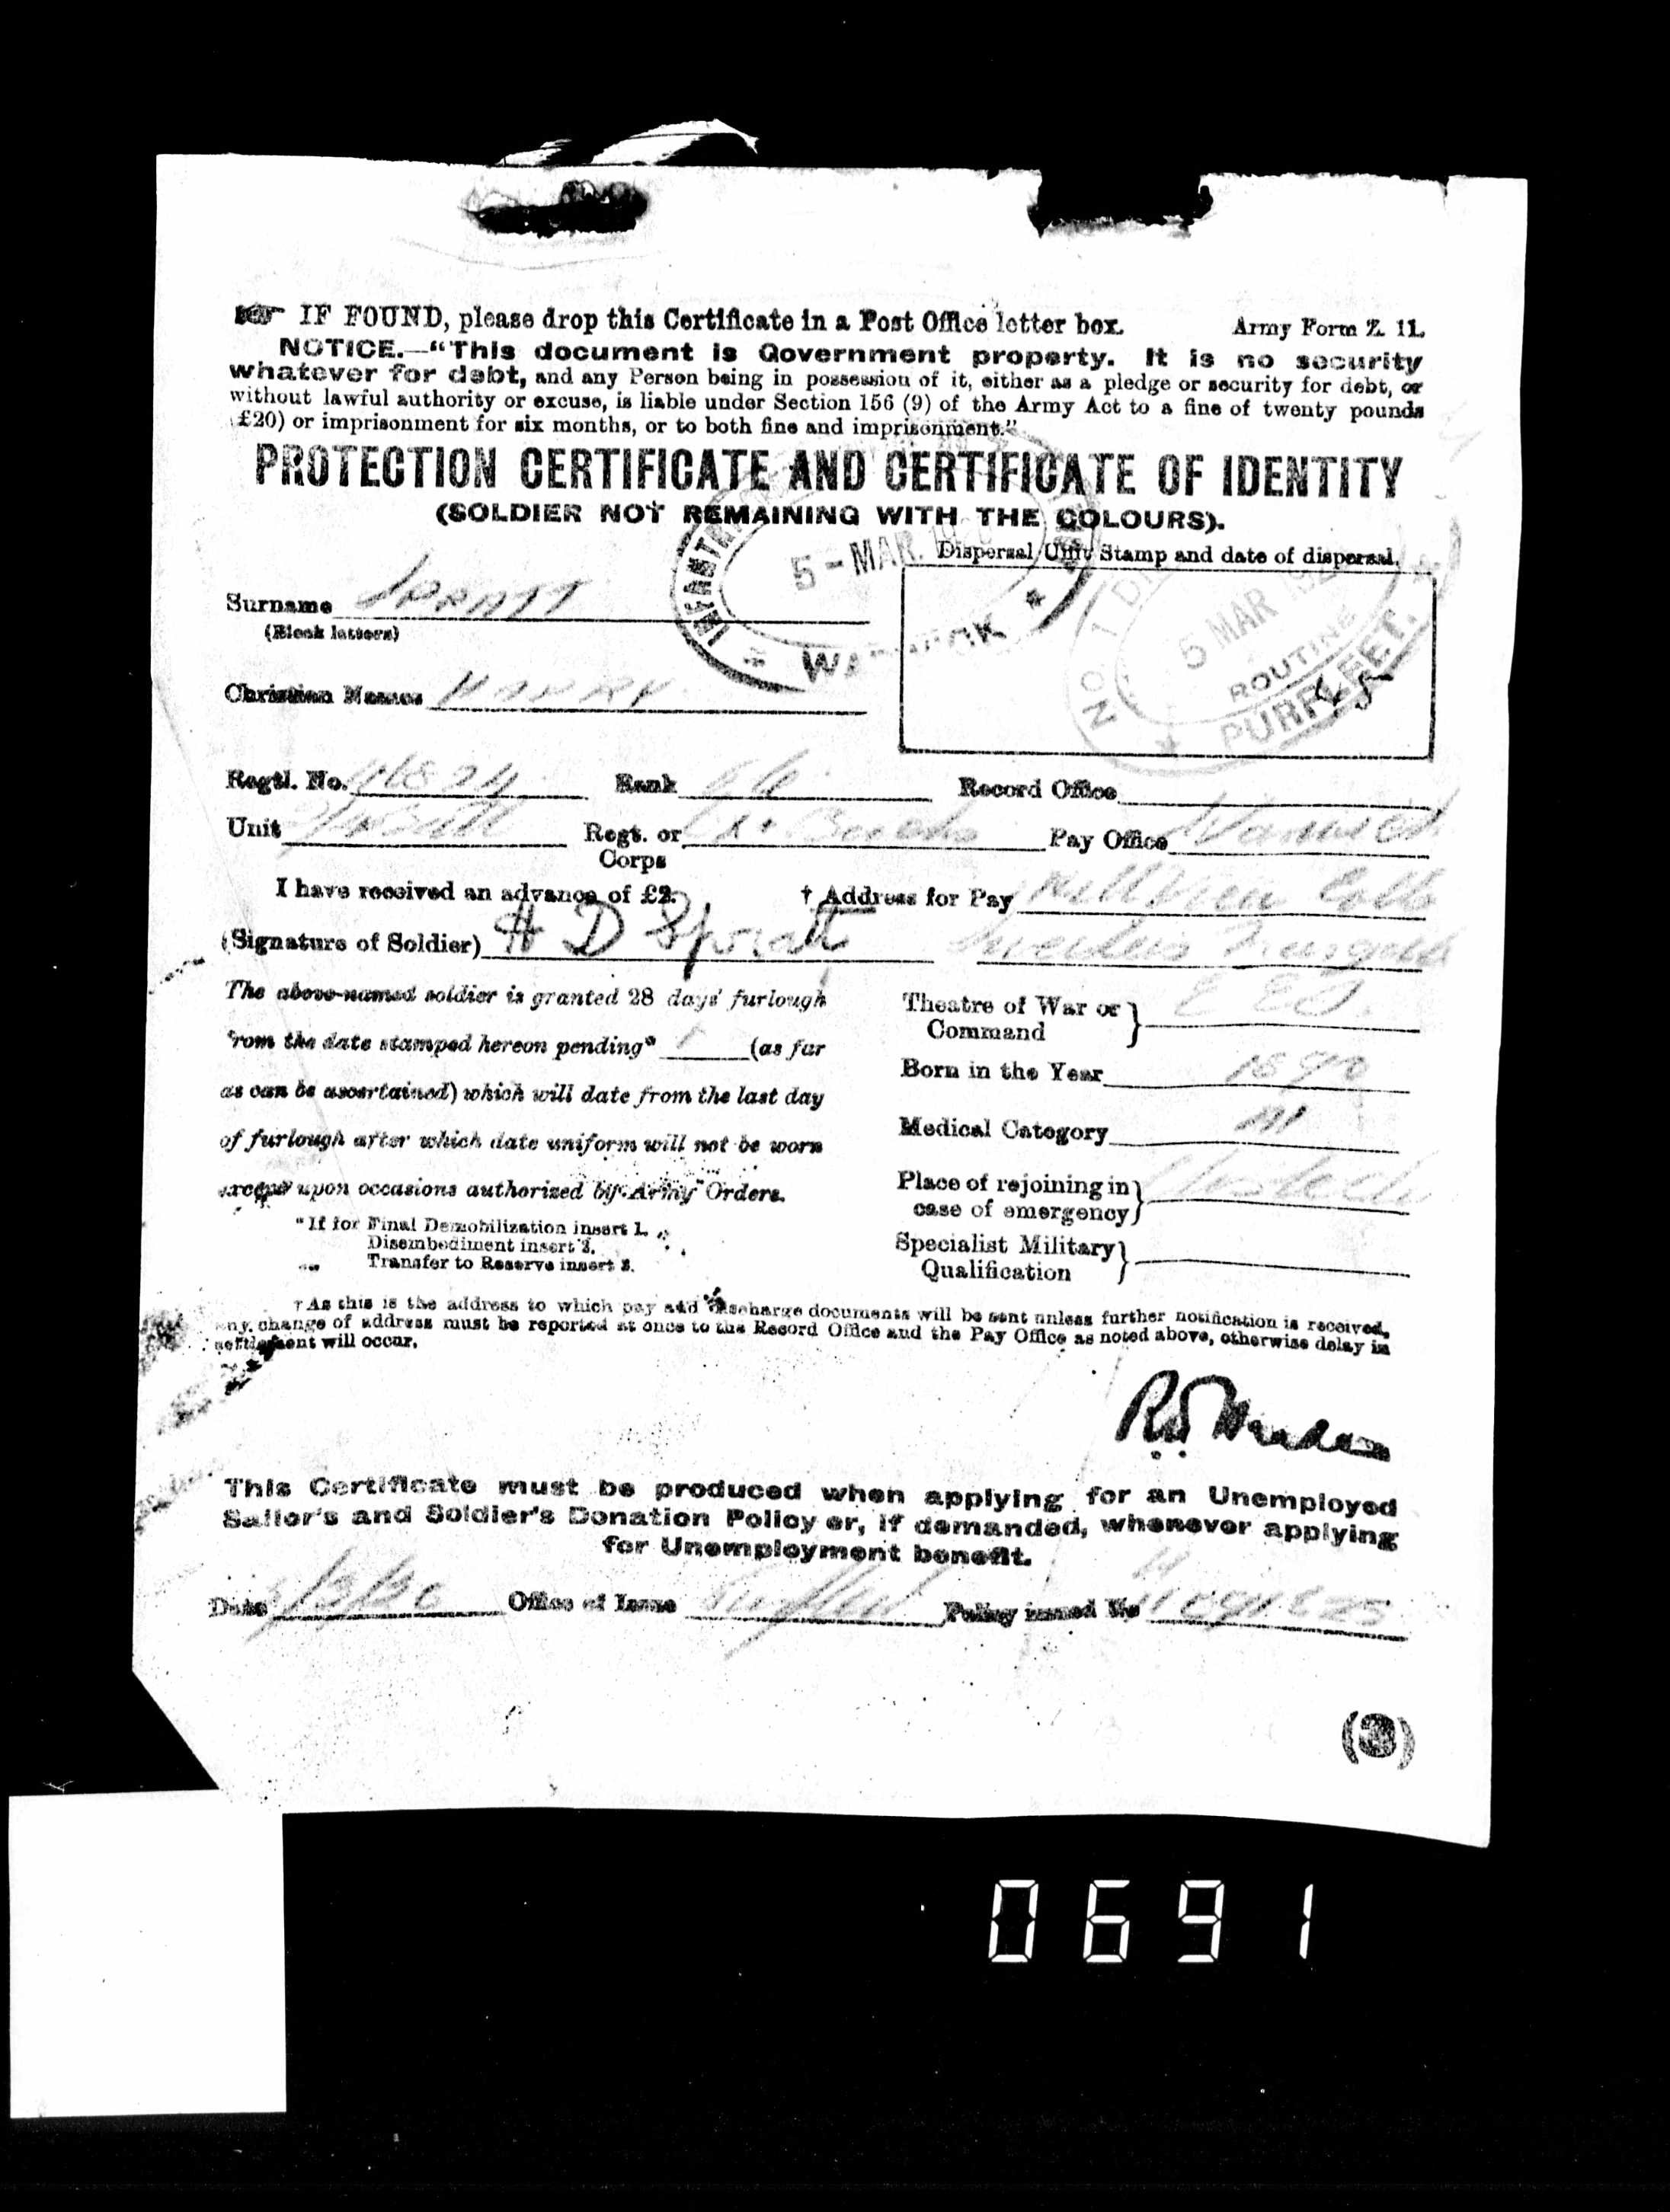 IF FOUND, please drop this Certificate in a Post Office letter box. Army Form Z. 11.
NOTICE.—"This document is Government property. It is no security
whatever for debt, and any Person being in possession of it, either as a pledge or security for debt, or
without lawful authority or excuse, is liable under Section 156 (9) of the Army Act to a fine of twenty pounds
£20) or imprisonment for six months, or to both fine and imprisonment."
PROTECTION CERTIFICATE AND CERTIFICATE OF IDENTITY
(SOLDIER NOT REMAINING WITH THE COLOURS).
Dispersal Unit Stamp and date of dispersal.
INFANTRY
5 - MAR.
NO. 1
5 MAR 192
ROUTINE
PURFLEET.
Surname SPRATT
(Block letters)
Christian Names HARRY
Regtl. No. 46824 Rank Record Office
Unit Regt. or Bucks Pay Office Warwick
Corps
I have received an advance of £2. † Address for Pay Hill View Cotts
(Signature of Soldier) H D Spratt
The above-named soldier is granted 28 days' furlough
from the date stamped hereon pending* 1 (as far
as can be ascertained) which will date from the last day
of furlough after which date uniform will not be worn
except upon occasions authorized by Army Orders.
Theatre of War or
Command
Born in the Year 1890
Medical Category A1
Place of rejoining in
case of emergency
Specialist Military
Qualification
*If for Final Demobilization insert 1.
Disembodiment insert 2.
" Transfer to Reserve insert 3.
† As this is the address to which pay and discharge documents will be sent unless further notification is received,
any change of address must be reported at once to the Record Office and the Pay Office as noted above, otherwise delay in
settlement will occur.
This Certificate must be produced when applying for an Unemployed
Sailor's and Soldier's Donation Policy or, if demanded, whenever applying
for Unemployment benefit.
Date 5/3/20 Office of Issue Purfleet Policy issued No
(3)
0691